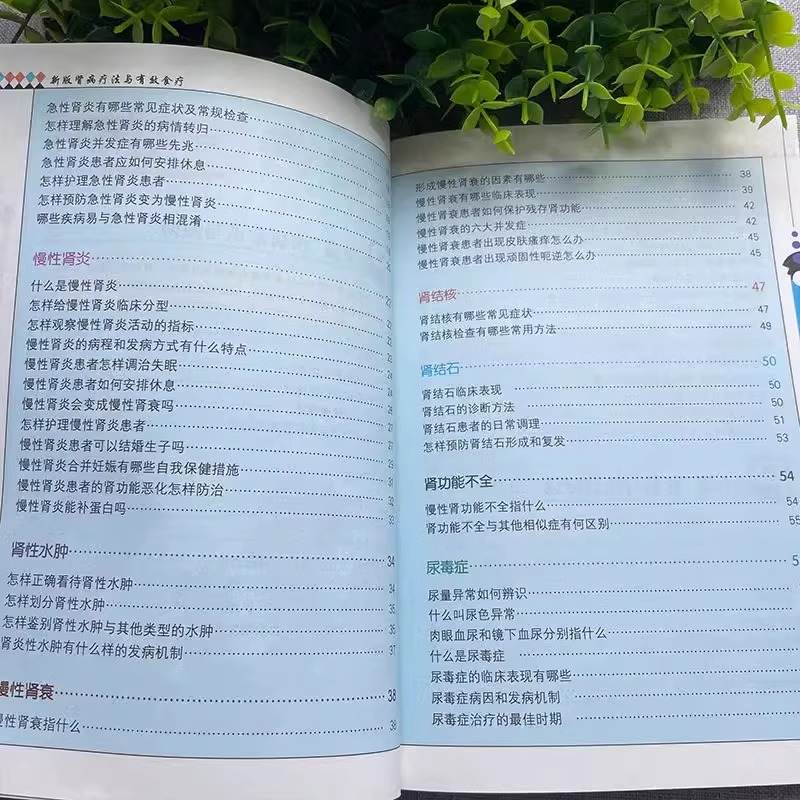 新版肾病疗法与有效食疗
急性肾炎有哪些常见症状及常规检查
怎样理解急性肾炎的病情转归
急性肾炎并发症有哪些先兆
急性肾炎患者应如何安排休息
怎样护理急性肾炎患者
怎样预防急性肾炎变为慢性肾炎
哪些疾病易与急性肾炎相混淆
慢性肾炎
什么是慢性肾炎
怎样给慢性肾炎临床分型
怎样观察慢性肾炎活动的指标
慢性肾炎的病程和发病方式有什么特点
慢性肾炎患者怎样调治失眠
慢性肾炎患者如何安排休息
慢性肾炎会变成慢性肾衰吗
怎样护理慢性肾炎患者
慢性肾炎患者可以结婚生子吗
慢性肾炎合并妊娠有哪些自我保健措施
慢性肾炎患者的肾功能恶化怎样防治
慢性肾炎能补蛋白吗 33
肾性水肿 34
怎样正确看待肾性水肿 34
怎样划分肾性水肿 35
怎样鉴别肾性水肿与其他类型的水肿 35
肾炎性水肿有什么样的发病机制 37
慢性肾衰 38
慢性肾衰指什么 38
形成慢性肾衰的因素有哪些 38
慢性肾衰有哪些临床表现 39
慢性肾衰患者如何保护残存肾功能 42
慢性肾衰的六大并发症 42
慢性肾衰患者出现皮肤瘙痒怎么办 45
慢性肾衰患者出现顽固性呃逆怎么办 45
肾结核 47
肾结核有哪些常见症状 47
肾结核检查有哪些常用方法 49
肾结石 50
肾结石临床表现 50
肾结石的诊断方法 50
肾结石患者的日常调理 51
怎样预防肾结石形成和复发 53
肾功能不全 54
慢性肾功能不全指什么 54
肾功能不全与其他相似症有何区别 55
尿毒症
尿量异常如何辨识
什么叫尿色异常
肉眼血尿和镜下血尿分别指什么
什么是尿毒症
尿毒症的临床表现有哪些
尿毒症病因和发病机制
尿毒症治疗的最佳时期